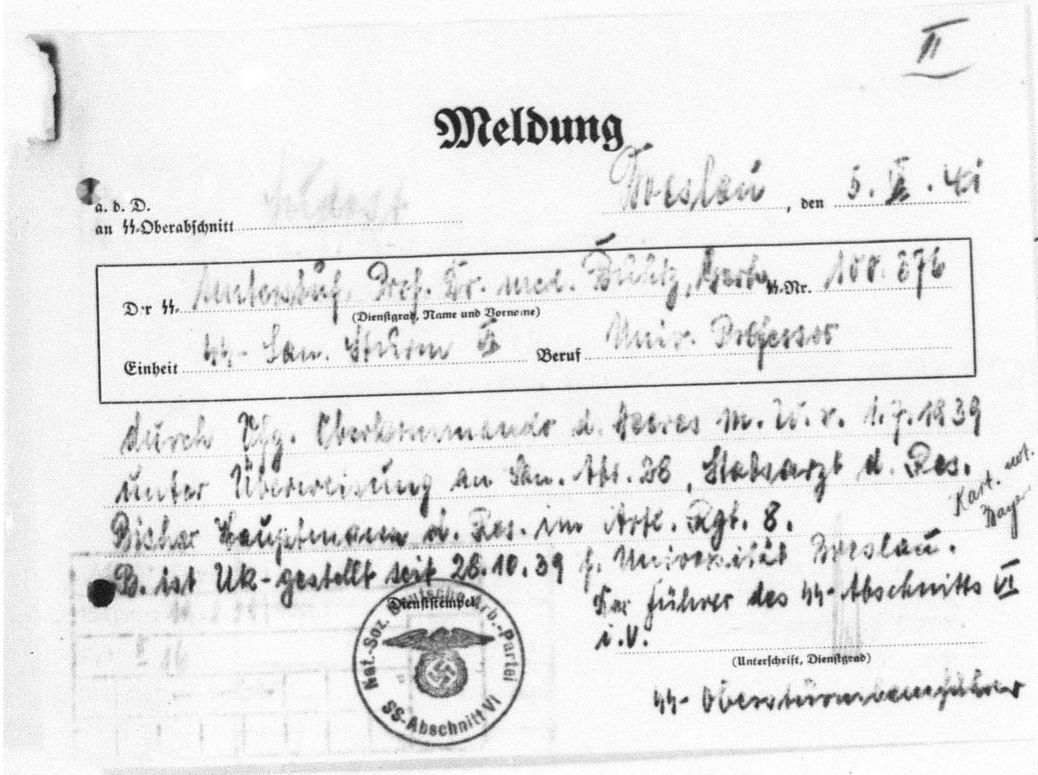 II
Meldung
Breslau, den 5. II. 41
a. d. D.
an SS-Oberabschnitt Südost
Der SS- Untersstuf. Prof. Dr. med. SS-Nr.
(Dienstgrad, Name und Vorname)
Einheit SS- San. Sturm VI Beruf Univ. Professor
durch Vfg. Oberkommando d. Heeres m. W. v. 1.7.1939
unter Überweisung an San. Abt. 28, Stabsarzt d. Res.
Bisher Hauptmann d. Res. im Artl. Rgt. 8.
Kart. not.
B. ist Uk-gestellt seit 26.10.39 f. Universität Breslau.
Dienststempel
Nat.-Soz. Deutsche Arb.-Partei
SS-Abschnitt VI
Der Führer des SS-Abschnitts VI
i.V.
(Unterschrift, Dienstgrad)
SS-Obersturmbannführer